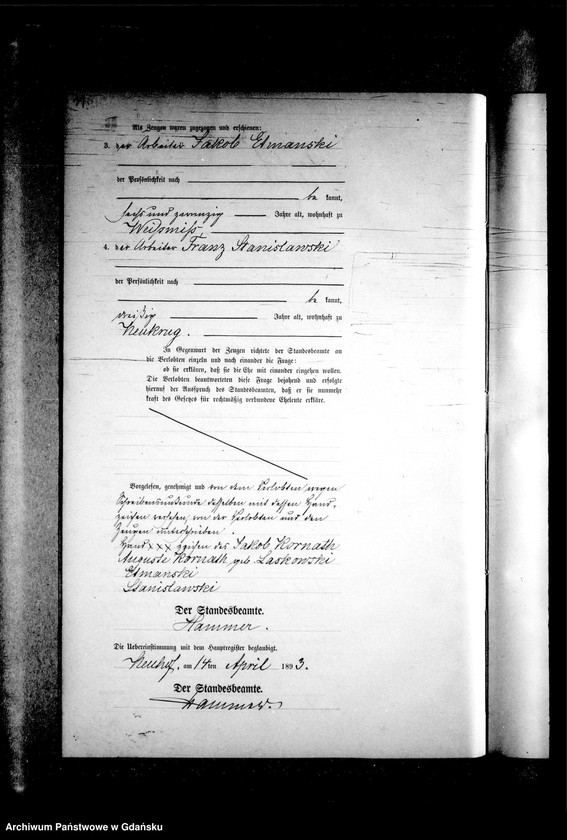 Als Zeugen waren zugezogen und erschienen:
3. der Arbeiter Jakob Etmanski
der Persönlichkeit nach
be kannt,
sechs und zwanzig Jahre alt, wohnhaft zu
4. der Arbeiter Franz Stanislawski
der Persönlichkeit nach
be kannt,
dreißig Jahre alt, wohnhaft zu
Neukrug.
In Gegenwart der Zeugen richtete der Standesbeamte an
die Verlobten einzeln und nach einander die Frage:
ob sie erklären, daß sie die Ehe mit einander eingehen wollen.
Die Verlobten beantworteten diese Frage bejahend und erfolgte
hierauf der Ausspruch des Standesbeamten, daß er sie nunmehr
kraft des Gesetzes für rechtmäßig verbundene Eheleute erkläre.
Vorgelesen, genehmigt und von dem Verlobten wegen
Schreibensunkunde desselben mit dessen Hand-
zeichen versehen, von der Verlobten und den
Zeugen unterschrieben.
Hand x x x zeichen des Jakob Kornath
Auguste Kornath geb. Laskowski
Etmanski
Stanislawski
Der Standesbeamte.
Hammer.
Die Uebereinstimmung mit dem Hauptregister beglaubigt.
Neuhof, am 14ten April 1893.
Der Standesbeamte.
Hammer.
Archiwum Państwowe w Gdańsku